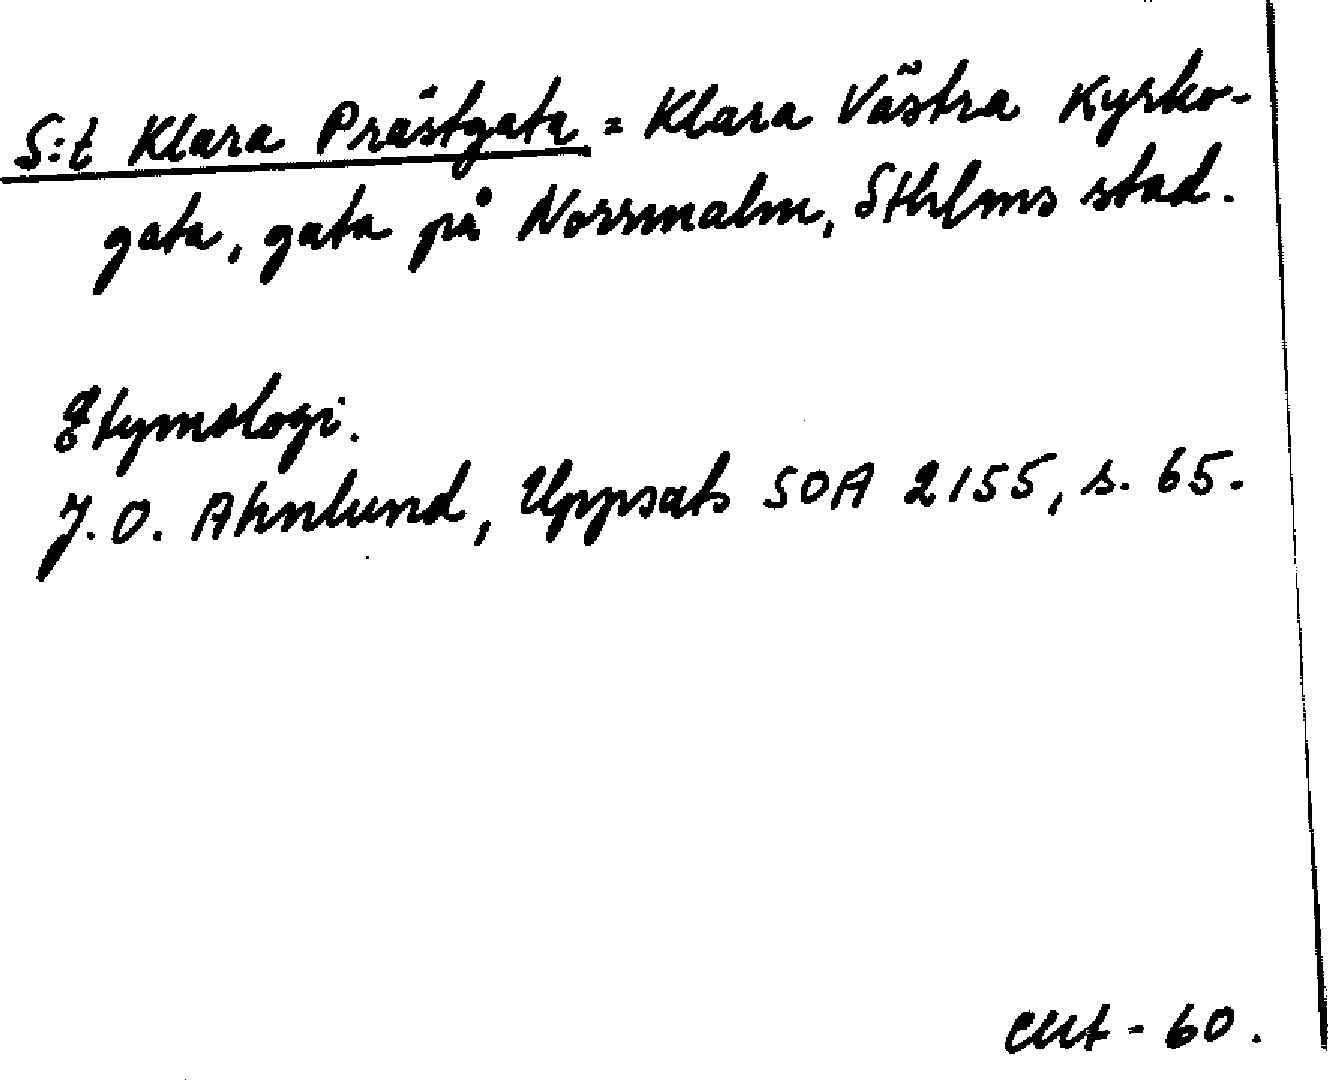 S:t Klara Prästgata = Klara Västra Kyrko-
gata, gata på Norrmalm, Sthlms stad.
Etymologi.
J. O. Ahnlund, Uppsats SOA 2155, s. 65.
-60.